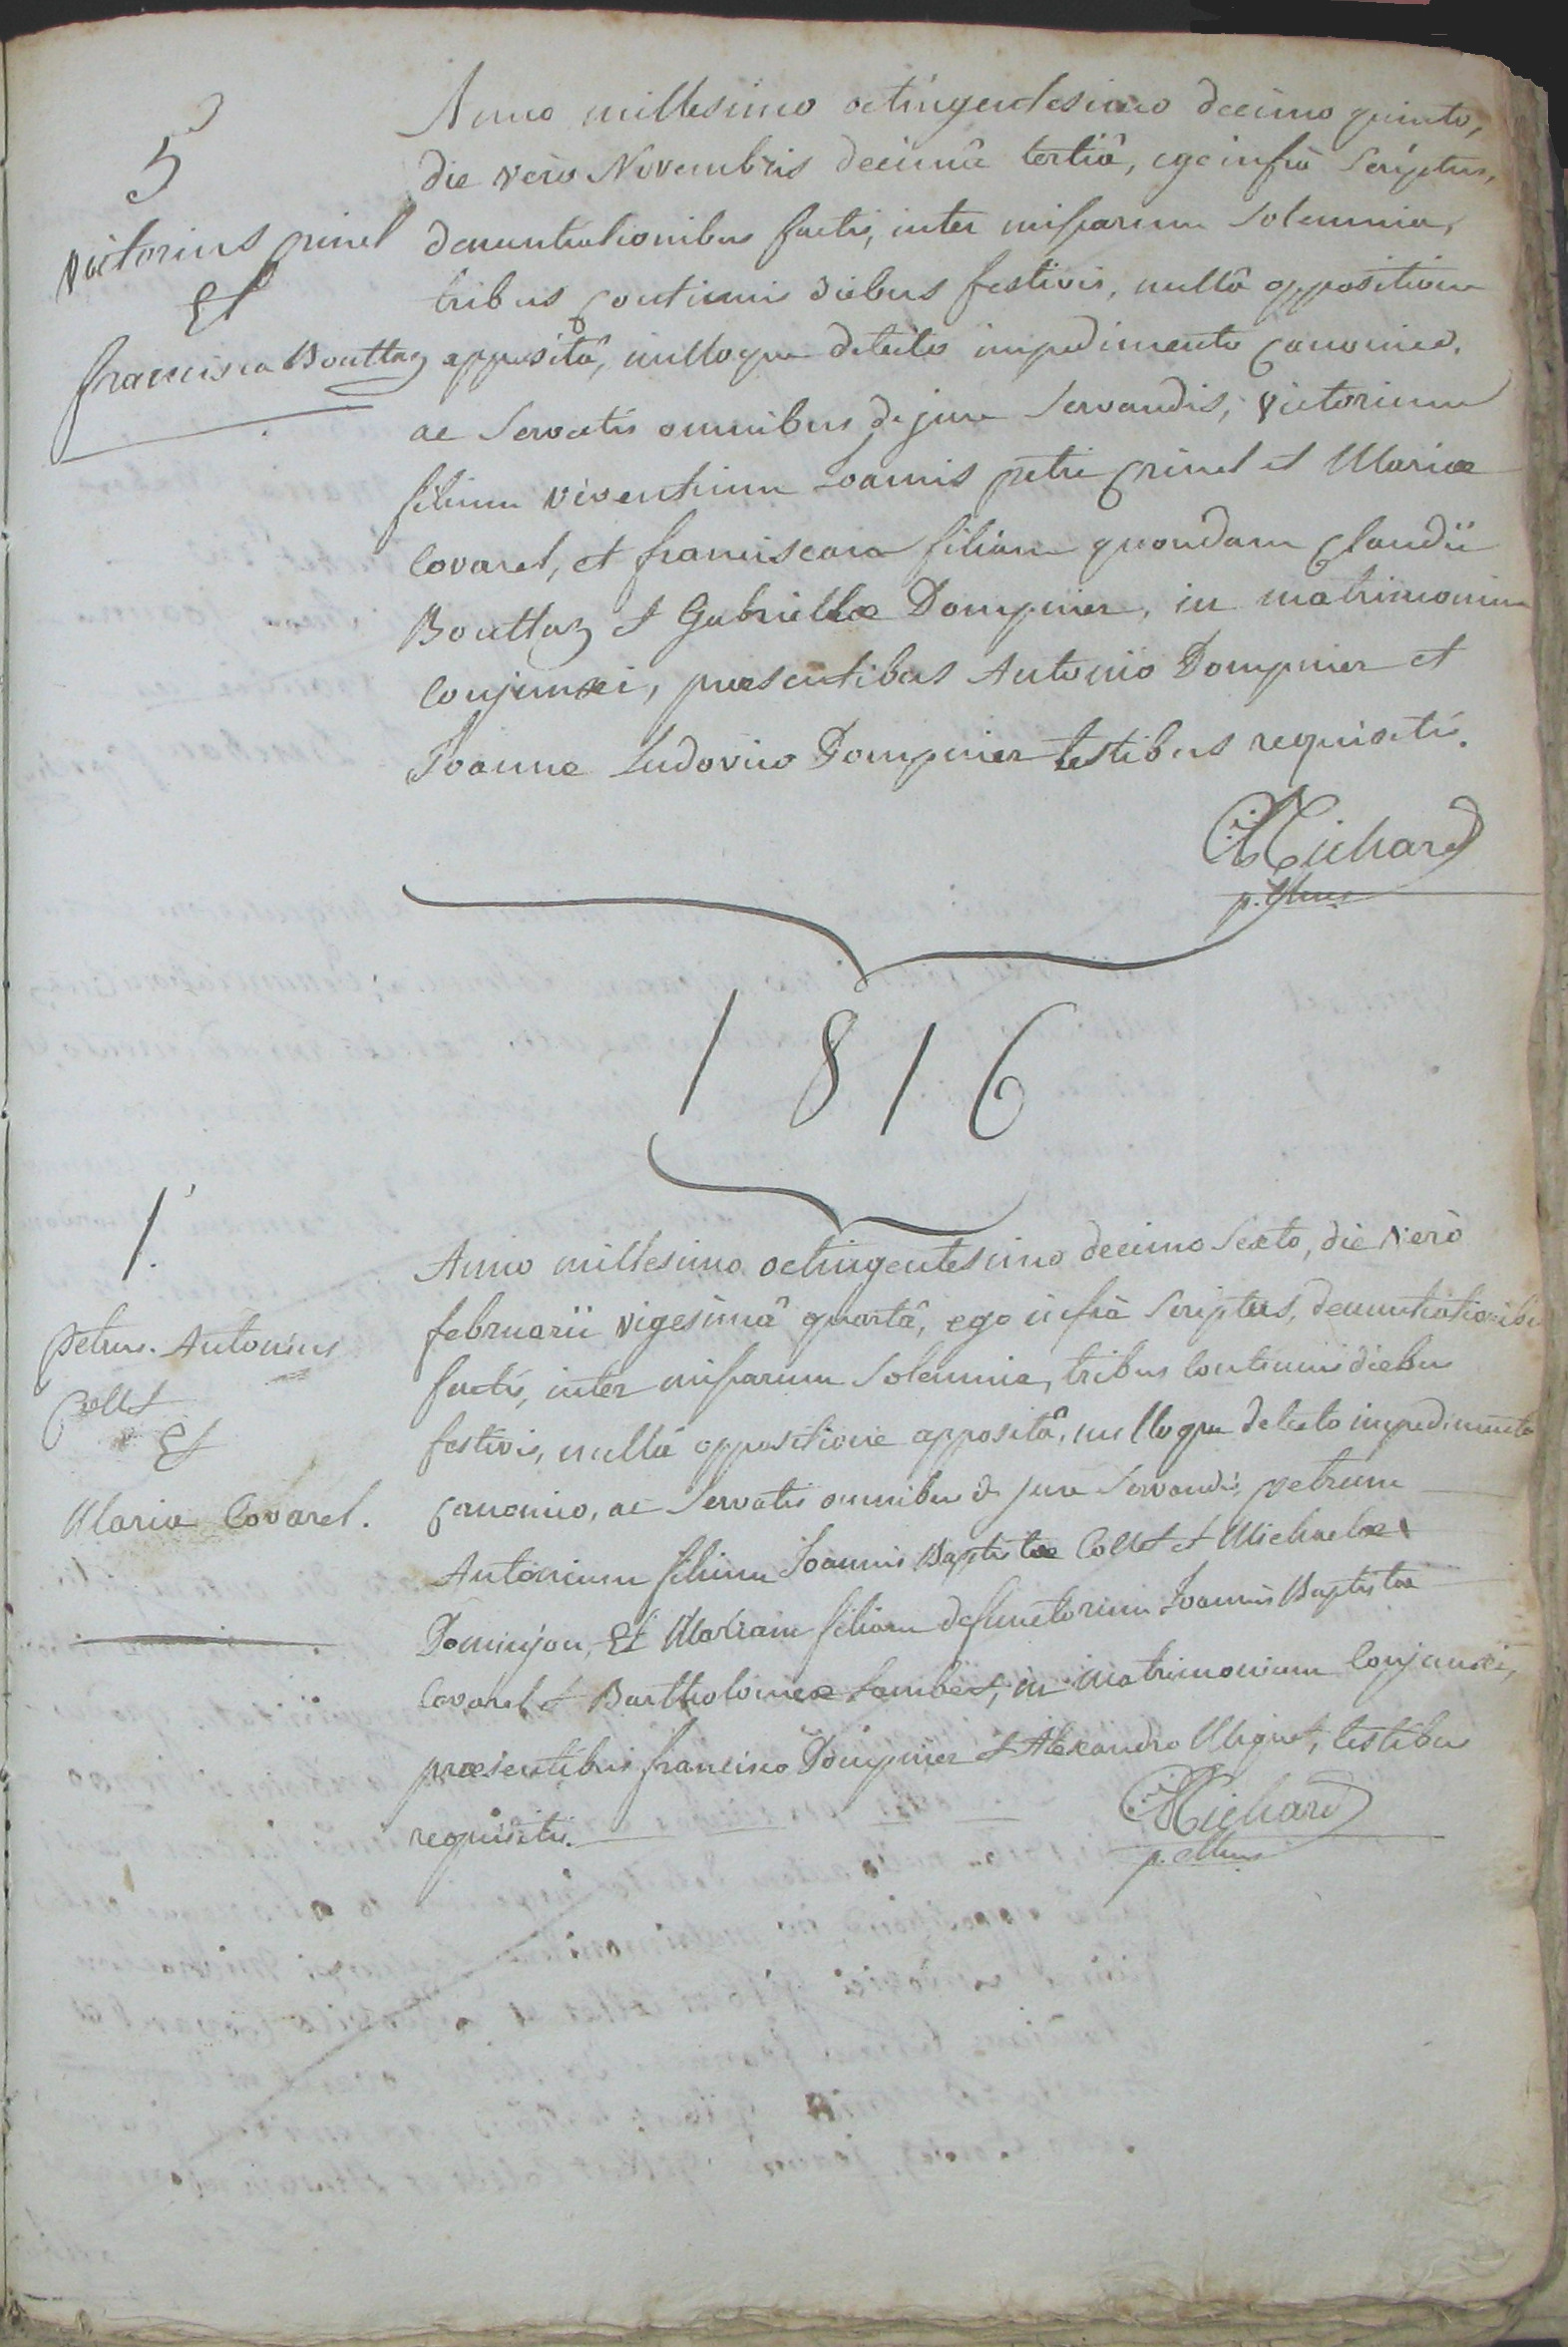 5
Victorius pinel
Et
francisca Bouttaz
Anno millesimo octingentesimo decimo quinto,
die verò Novembris decimâ tertiâ, ego infrà Scriptus,
denuntiationibus factis, inter missarum Solemnia,
tribus continuis diebus festivis, nullâ oppositione
appositâ, nulloque detecto impedimento canonico,
ac Servatis omnibus de jure Servandis, Victorium
filium viventium Joannis petri pinel et Mariæ
Covarel, et franciscam filiam quondam Claudii
Bouttaz et Gabriellæ Dompnier, in matrimonium
Conjunxi, præsentibus Antonio Dompnier et
Joanne Ludovico Dompnier testibus requisitis.
Richard
1816
1.
petrus Antonius
Collet
Et
Maria Covarel.
Anno millesimo octingentesimo decimo Sexto, die verò
februarii vigesimâ quartâ, ego infrà Scriptus, denuntiationibus
factis, inter missarum Solemnia, tribus continuis diebus
festivis, nullâ oppositione appositâ, nulloque detecto impedimento
canonico, ac Servatis omnibus de jure Servandis, petrum
Antonium filium Joannis Baptistæ Collet et Michaelæ
Dominjon, Et Mariam filiam defunctorum Joannis Baptistæ
Covarel et Bartholomeæ Lambert, in matrimonium Conjunxi,
præsentibus francisco Dompnier et Alexandro Miguet, testibus
requisitis.
Richard